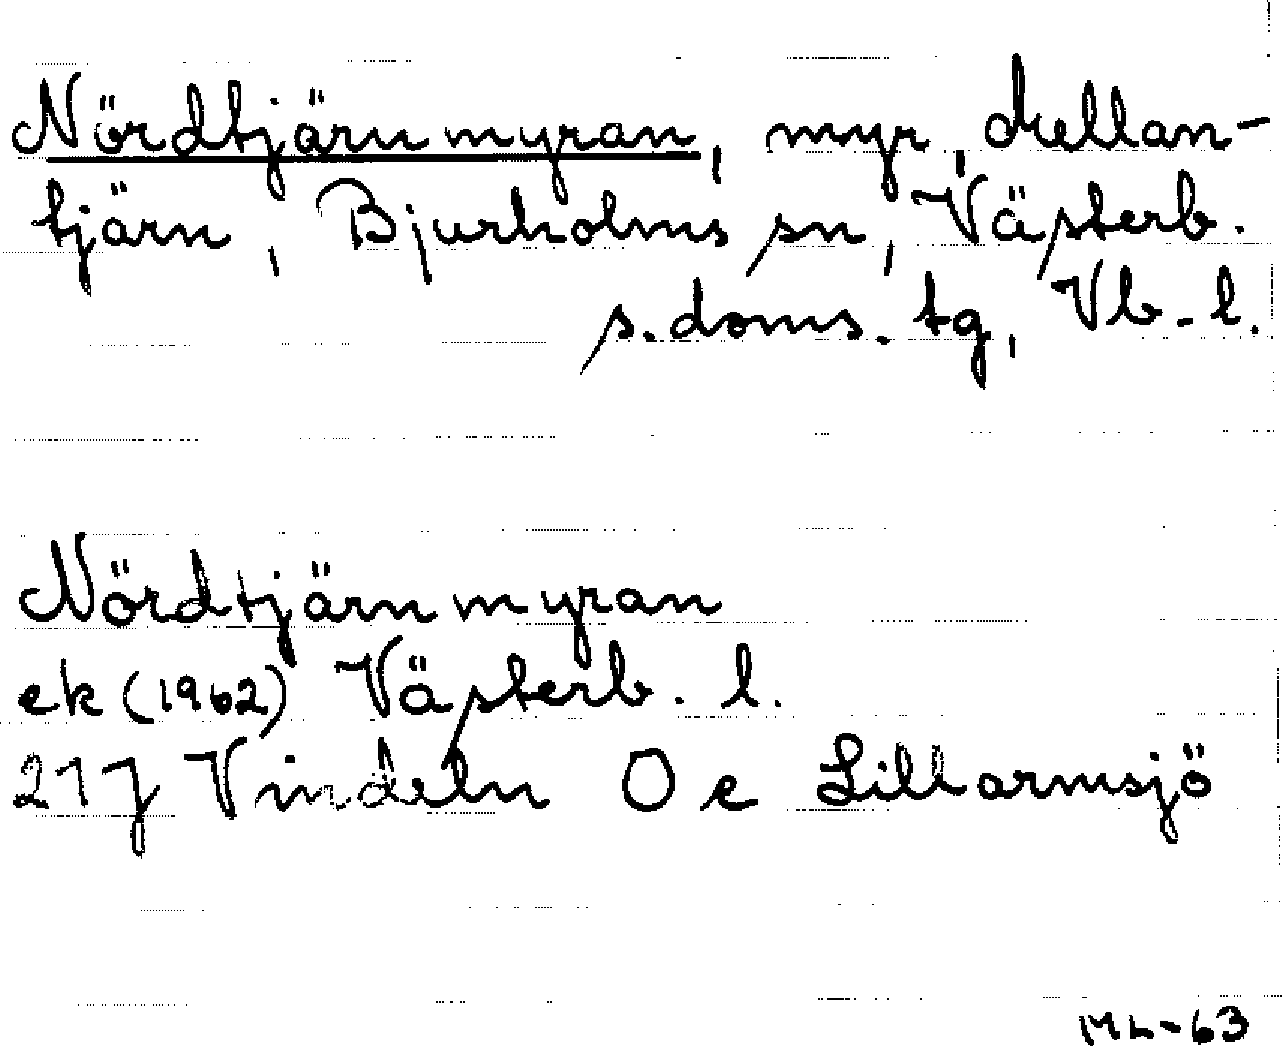 Nördtjärnmyran, myr, Mellan-
tjärn, Bjurholms sn, Västerb.
s. doms. tg, Vb. l.
Nördtjärnmyran
ek (1962) Västerb. l.
21J Vindeln 0 e Lillarmsjö
ML-63